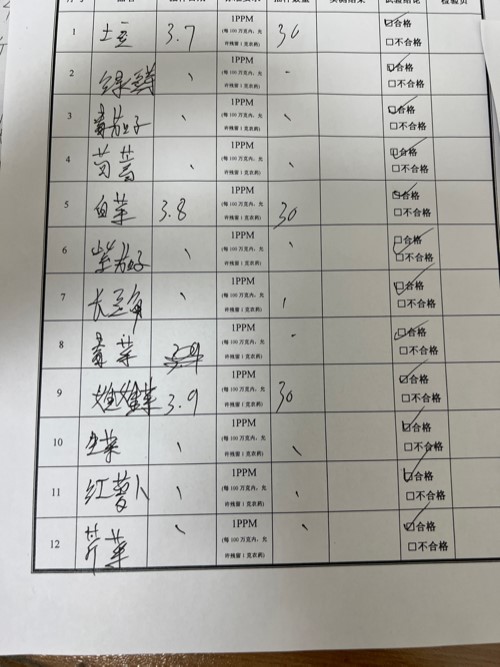 1 土豆 3.7 1PPM (每 100 万克内，允许残留 1 克农药) 30 ☑合格 □不合格
2 1PPM (每 100 万克内，允许残留 1 克农药) ☑合格 □不合格
3 1PPM (每 100 万克内，允许残留 1 克农药) ☑合格 □不合格
4 1PPM (每 100 万克内，允许残留 1 克农药) ☑合格 □不合格
5 白菜 3.8 1PPM (每 100 万克内，允许残留 1 克农药) 30 ☑合格 □不合格
6 紫茄子 1PPM (每 100 万克内，允许残留 1 克农药) ☑合格 □不合格
7 长豆角 1PPM (每 100 万克内，允许残留 1 克农药) ☑合格 □不合格
8 1PPM (每 100 万克内，允许残留 1 克农药) ☑合格 □不合格
9 娃娃菜 3.9 1PPM (每 100 万克内，允许残留 1 克农药) 30 ☑合格 □不合格
10 生菜 1PPM (每 100 万克内，允许残留 1 克农药) ☑合格 □不合格
11 红萝卜 1PPM (每 100 万克内，允许残留 1 克农药) ☑合格 □不合格
12 芹菜 1PPM (每 100 万克内，允许残留 1 克农药) ☑合格 □不合格